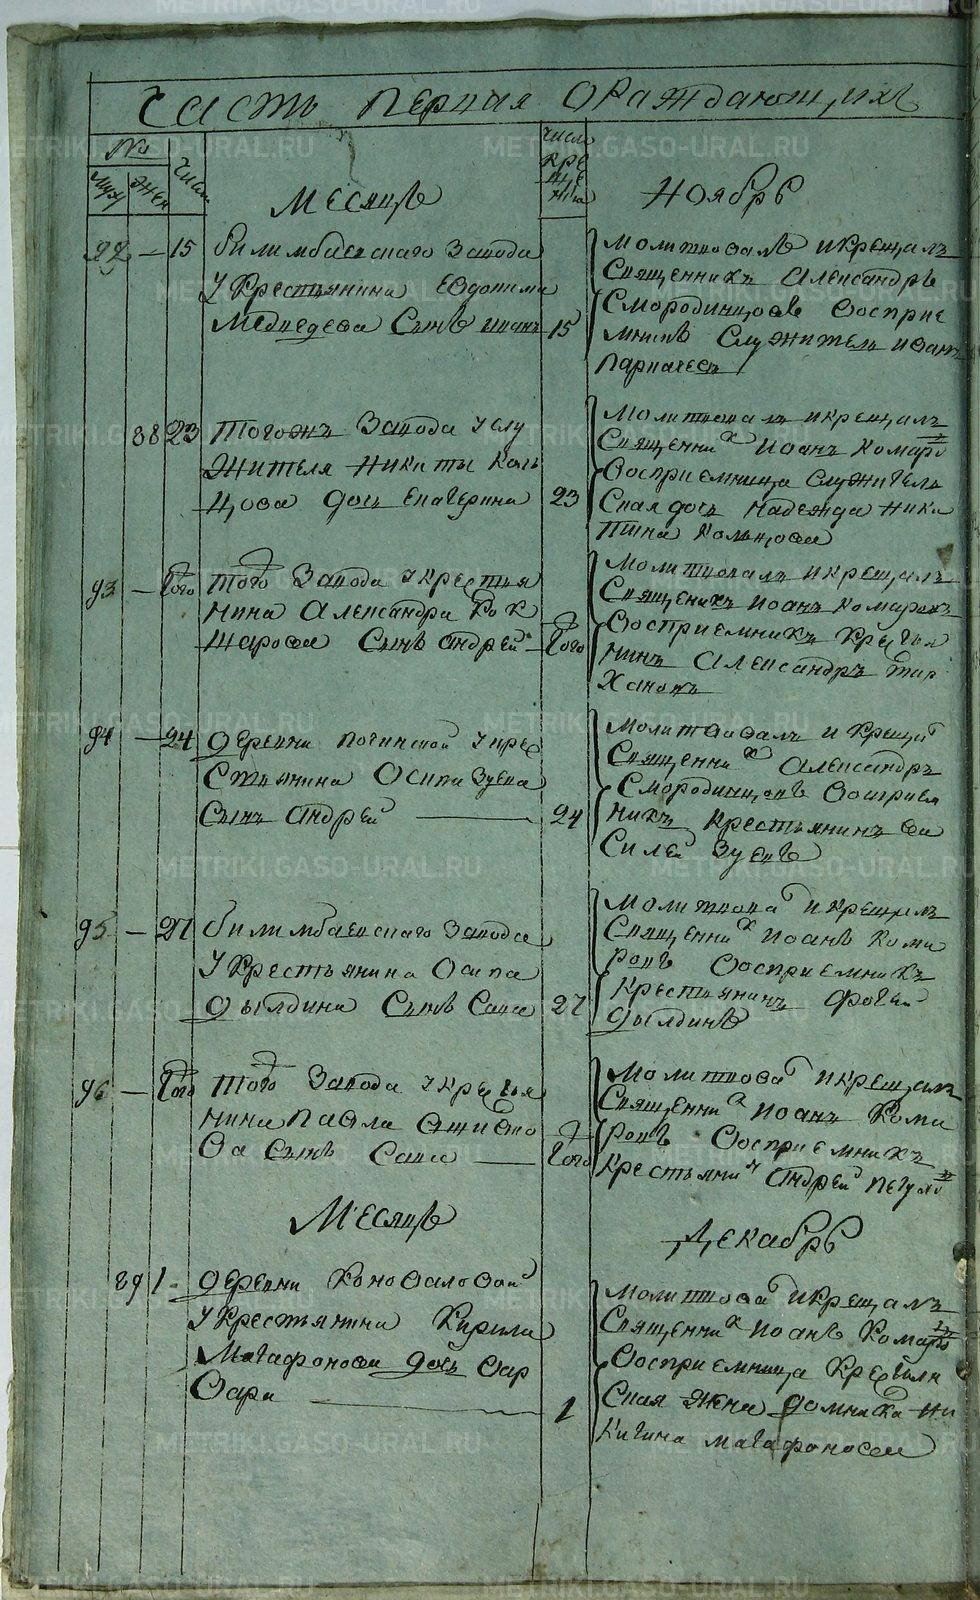 Часть первая ораждающихъ
№
Муж
Жен
Число
Число
кре
ще
нiя
Месяцъ
Ноябрь
92 — 15
билимбаевскаго завода
у крестьянина Евдокима
Медведева сынъ иванъ
15
Молитвовалъ икрещалъ
Священникъ Александръ
Смородинцовъ Восприе
мникъ Служитель иванъ
88 23
тогожъ завода у слу
жителя Никиты Коль
цова дочь екатерина
23
Молитвовалъ икрещалъ
Священникъ Иоанъ Комаровъ
Восприемница служитель
ская дочь надежда ники
тина Кольцова
93 — того
того завода укрестья
нина Александра Кок
шарова Сынъ андрей
того
Молитвовалъ икрещалъ
Священикъ иоанъ комаровъ
Восприемникъ кресья
нинъ Александръ тар
хановъ
94 — 24
деревни починской укре
стьянина Осипа Зуева
сынъ андрей
24
Молитвовалъ и крещал
Священник Александръ
Смородинцовъ Восприем
никъ крестьянинъ ва
силей Зуевъ
95 — 27
билимбаевскаго завода
у крестьянина Осипа
дылдина Сынъ Сава
27
Молитвова икрещалъ
Священник иоанъ кома
ровъ Восприемникъ
крестьянинъ фотей
дылдинъ
96 — того
того завода укресья
нина павла
ва сынъ Сава
того
Молитвова икрещалъ
Священник иоанъ кома
ровъ Восприемникъ
крестьянин андрей
Месяцъ
Декабрь
89 1
деревни коноваловой
укрестьянина кирила
Магафонова дочь вар
вара
1
Молитвова икрещалъ
Священник иоанъ комаровъ
Восприемница кресьян
ская жена домника ни
китина магафонова